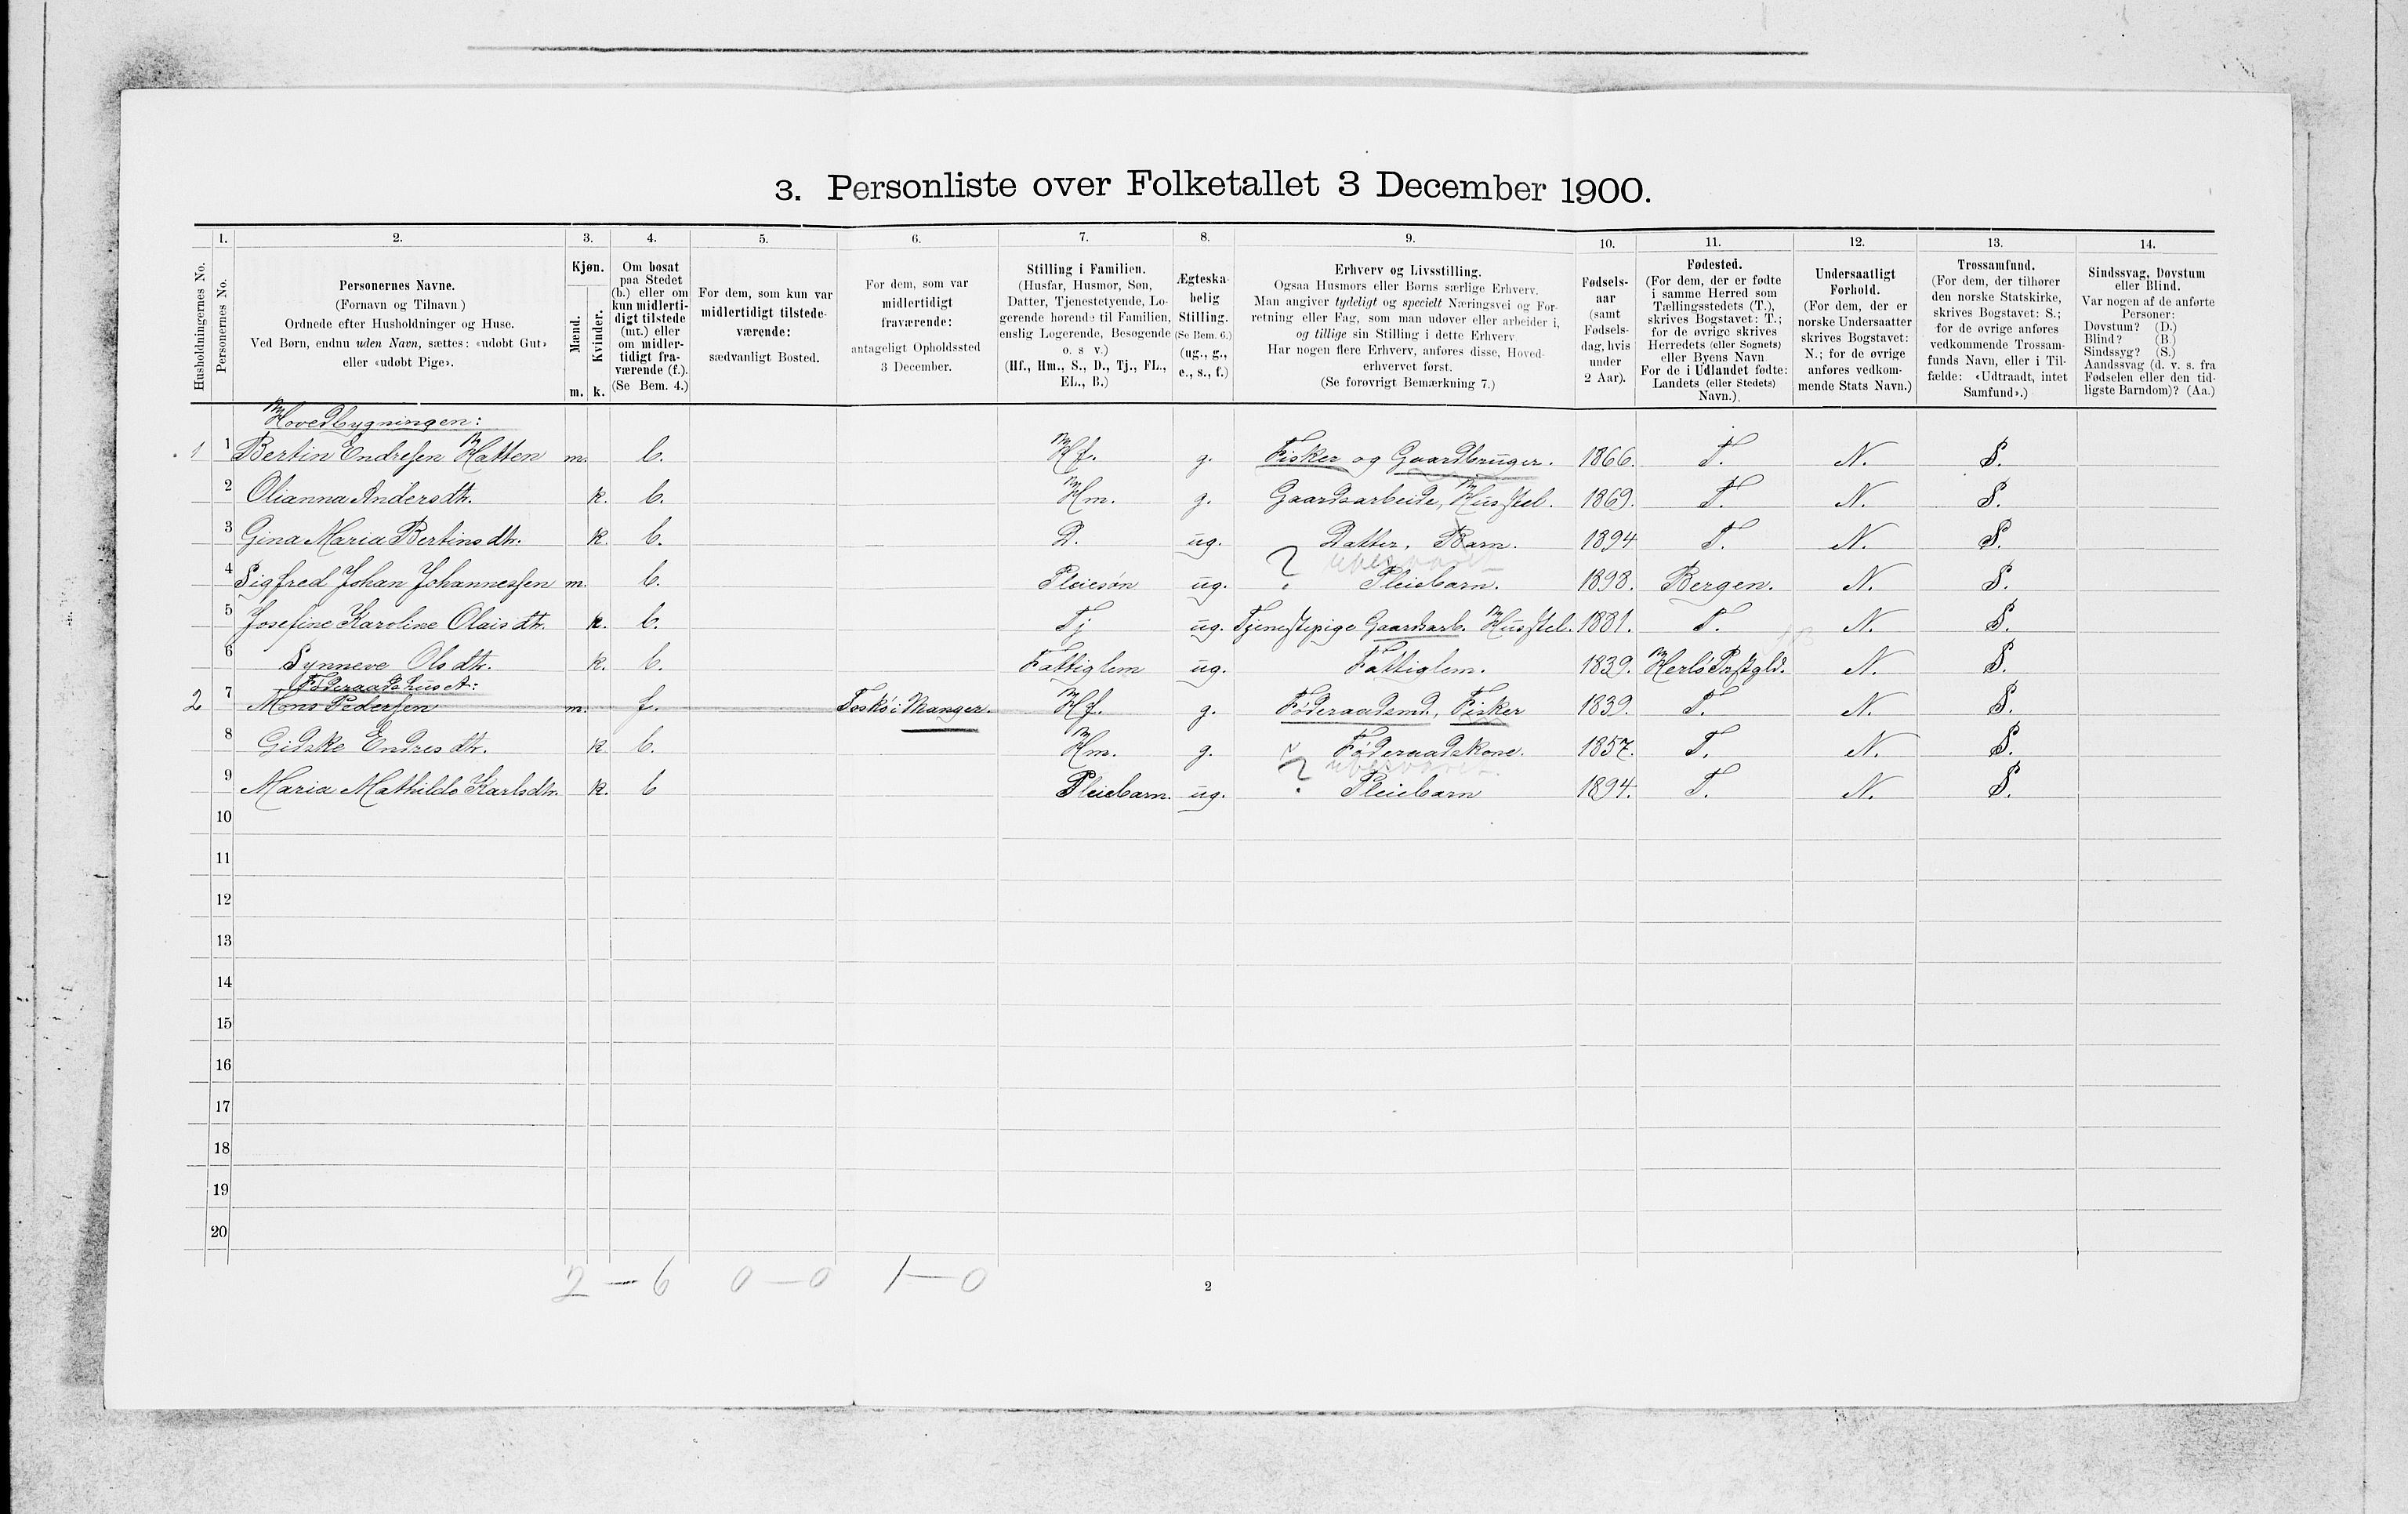 3. Personliste over Folketallet 3 December 1900.
1. 2. 3. 4. 5. 6. 7. 8. 9. 10. 11. 12. 13. 14.
Husholdningernes No.
Personernes No.
Personernes Navne.
(Fornavn og Tilnavn)
Ordnede efter Husholdninger og Huse.
Ved Børn, endnu uden Navn, sættes: «udøbt Gut»
eller «udøbt Pige».
Kjøn.
Mænd.
Kvinder.
m. k.
Om bosat
paa Stedet
(b.) eller om
kun midlerti-
digt tilstede
(mt.) eller
om midler-
tidigt fra-
værende (f.).
(Se Bem. 4.)
For dem, som kun var
midlertidigt tilstede-
værende:
sædvanligt Bosted.
For dem, som var
midlertidigt
fraværende:
antageligt Opholdssted
3 December.
Stilling i Familien.
(Husfar, Husmor, Søn,
Datter, Tjenestetyende, Lo-
gerende hørende til Familien,
enslig Logerende, Besøgende
o. s v.)
(Hf., Hm., S., D., Tj., FL.,
EL., B.)
Ægteska-
belig
Stilling.
(Se Bem. 6.)
(ug., g.,
e., s., f.)
Erhverv og Livsstilling.
Ogsaa Husmors eller Børns særlige Erhverv.
Man angiver tydeligt og specielt Næringsvei og For-
retning eller Fag, som man udøver eller arbeider i,
og tillige sin Stilling i dette Erhverv
Har nogen flere Erhverv, anføres disse, Hoved-
erhvervet først.
(Se forøvrigt Bemærkning 7.)
Fødsels-
aar
(samt
Fødsels-
dag, hvis
under
2 Aar).
Fødested.
(For dem, der er fødte
i samme Herred som
Tællingsstedets (T.),
skrives Bogstavet: T.;
for de øvrige skrives
Herredets (eller Sognets)
eller Byens Navn
For de i Udlandet fødte:
Landets (eller Stedets)
Navn.)
Undersaatligt
Forhold.
(For dem, der er
norske Undersaatter
skrives Bogstavet:
N.; for de øvrige
anføres vedkom-
mende Stats Navn.)
Trossamfund.
(For dem, der tilhører
den norske Statskirke,
skrives Bogstavet: S.;
for de øvrige anføres
vedkommende Trossam-
funds Navn, eller i Til-
fælde: «Udtraadt, intet
Samfund».)
Sindssvag, Døvstum
eller Blind.
Var nogen af de anførte
Personer:
Døvstum? (D.)
Blind? (B.)
Sindssyg? (S.)
Aandssvag (d. v. s. fra
Fødselen eller den tid-
ligste Barndom)? (Aa.)
Hovedbygningen:
1 1 Bertin Endresen Hatten m. b. Hf. g. Fisker og Gaardbruger. 1866. T. N. S.
2 Olianna Andersdtr. k. b. Hm. g. Gaardsarbeide, Husstel. 1869. T. N. S.
3 Gina Maria Bertinsdtr. k. b. D. ug. Datter, Barn. 1894 T. N. S.
4 Sigfred Johan Johannessen m. b. Pleiesøn ug. Pleiebarn. 1898. Bergen. N. S.
5 Josefine Karoline Olaisdtr. k. b. Tj ug. Tjenestepige Gaardsarb. Husstel. 1881. T. N. S.
6 Synneve Olsdtr. k. b. Fattiglem ug. Fattiglem. 1839. Herlø Præstgld. N. S.
Føderaadshuset:
2 7 Mons Pedersen m. f. Toskø i Manger. Hf. g. Føderaadsmd, Fisker 1839. T. N. S.
8 Gidske Endresdtr. k. b. Hm. g. Føderaadskone. 1857. T. N. S.
9 Maria Mathilde Karlsdtr. k. b Pleiebarn. ug. Pleiebarn 1894. T. N. S.
10
11
12
13
14
15
16
17
18
19
20
2 — 6 0 — 0 1 — 0
2